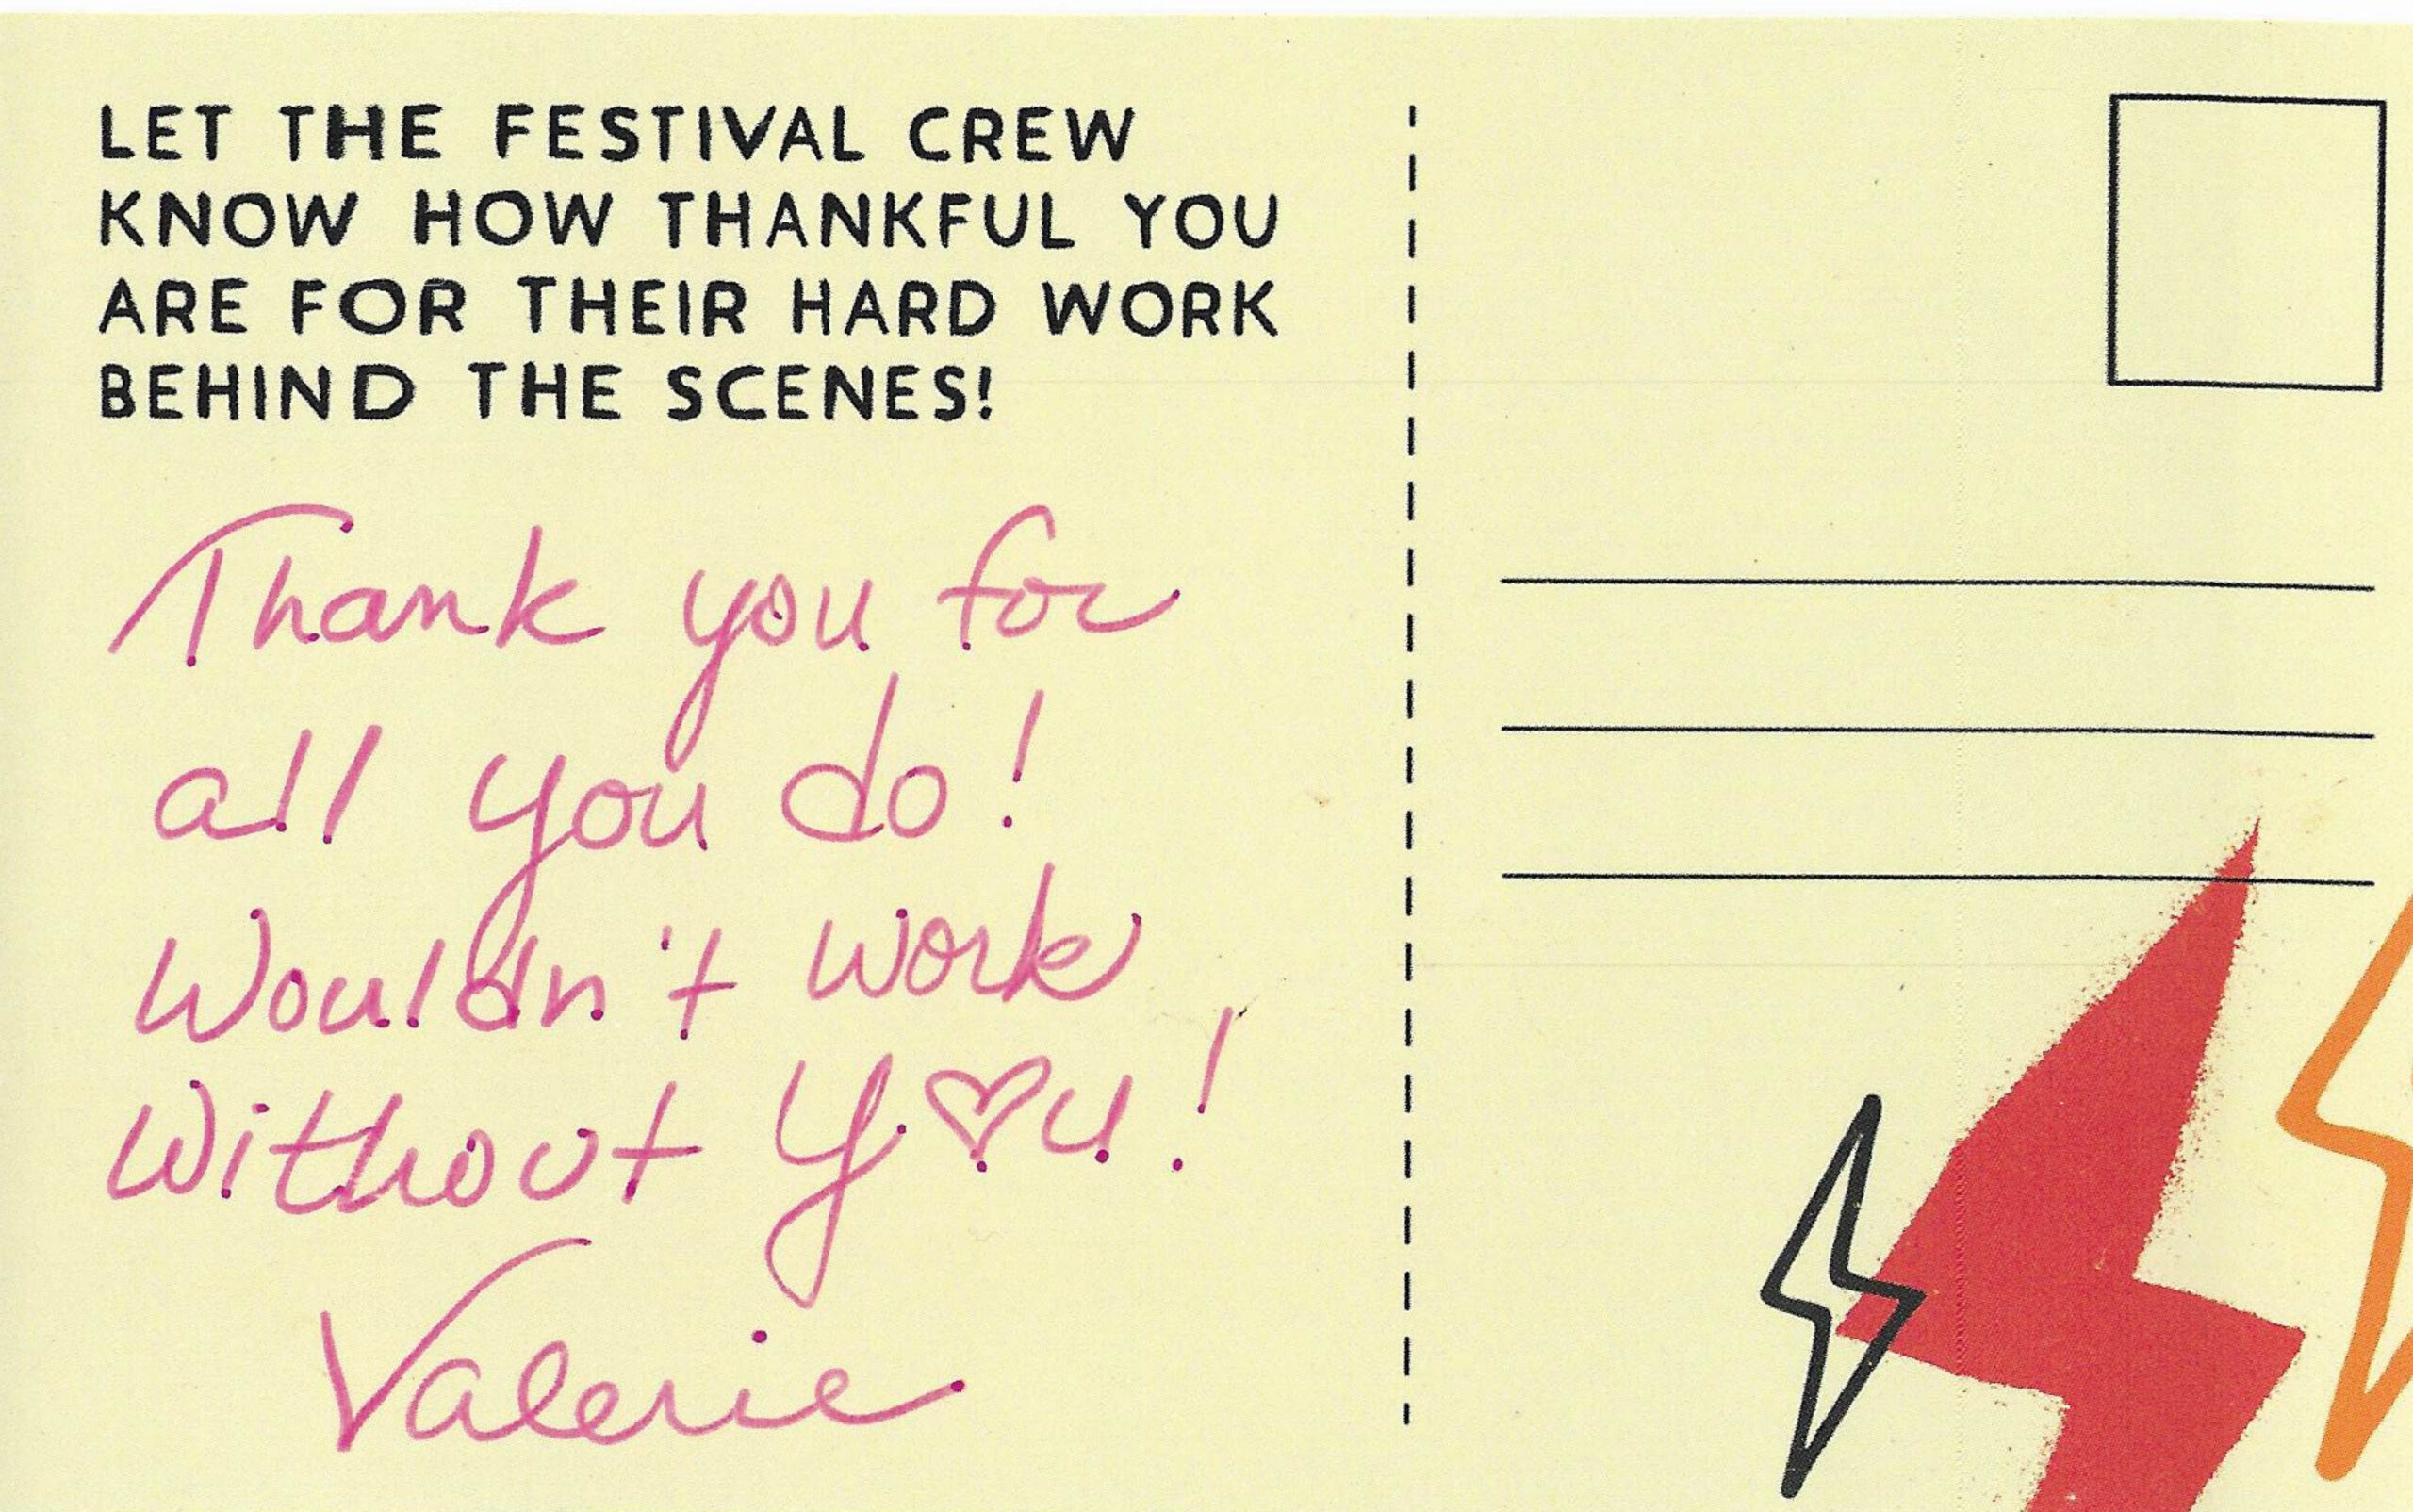 LET THE FESTIVAL CREW
KNOW HOW THANKFUL YOU
ARE FOR THEIR HARD WORK
BEHIND THE SCENES!
Thank you for
all you do!
Wouldn't work
without y♡u!
Valerie